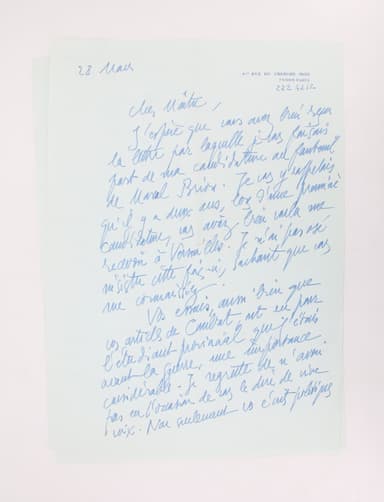 28 Mars
41 bis rue du Cherche Midi
222 42 12
Cher Maître,
J'espère que vous avez bien reçu
la lettre par laquelle je vous faisais
part de ma candidature au fauteuil
de Marcel Brion. Je vous y rappelais
qu'il y a deux ans, lors d'une première
candidature, vous avez bien voulu me
recevoir à Versailles. Je n'ai pas osé
insister cette fois-ci, sachant que vous
me connaissiez.
Vos essais, aussi bien que
vos articles de Combat, ont eu pour
l'étudiant provincial que j'étais
avant la guerre, une importance
considérable. Je regrette de n'avoir
pas eu l'occasion de vous le dire de vive
voix. Non seulement vos écrits politiques